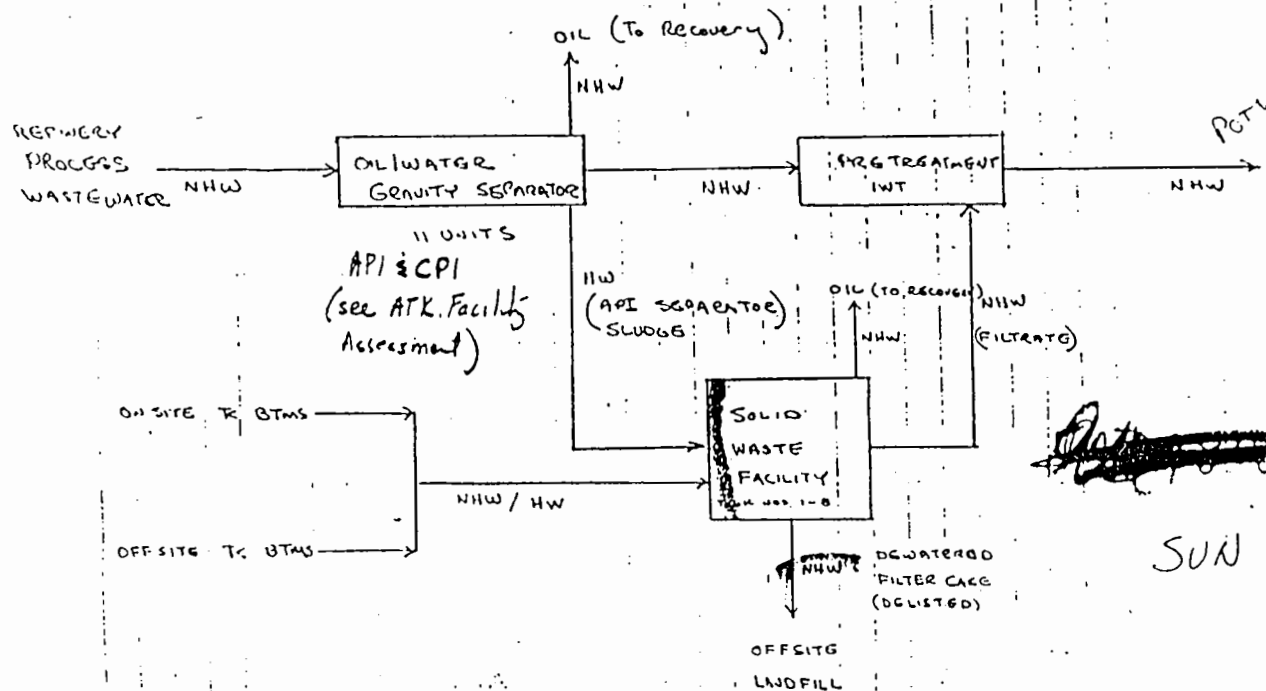 OIL (To Recovery)
NHW
REFINERY
PROCESS
WASTEWATER
NHW
OIL/WATER
GRAVITY SEPARATOR
NHW
PRETREATMENT
IWT
NHW
11 UNITS
API & CPI
(see ATK. Facility
Assessment)
HW
(API SEPARATOR
SLUDGE)
OIL (TO RECOVERY)
NHW
NHW
(FILTRATE)
ONSITE TK BTMS
OFFSITE TK BTMS
NHW / HW
SOLID
WASTE
FACILITY
1-8
SUN
NHW
DEWATERED
FILTER CAKE
(DELISTED)
OFFSITE
LANDFILL